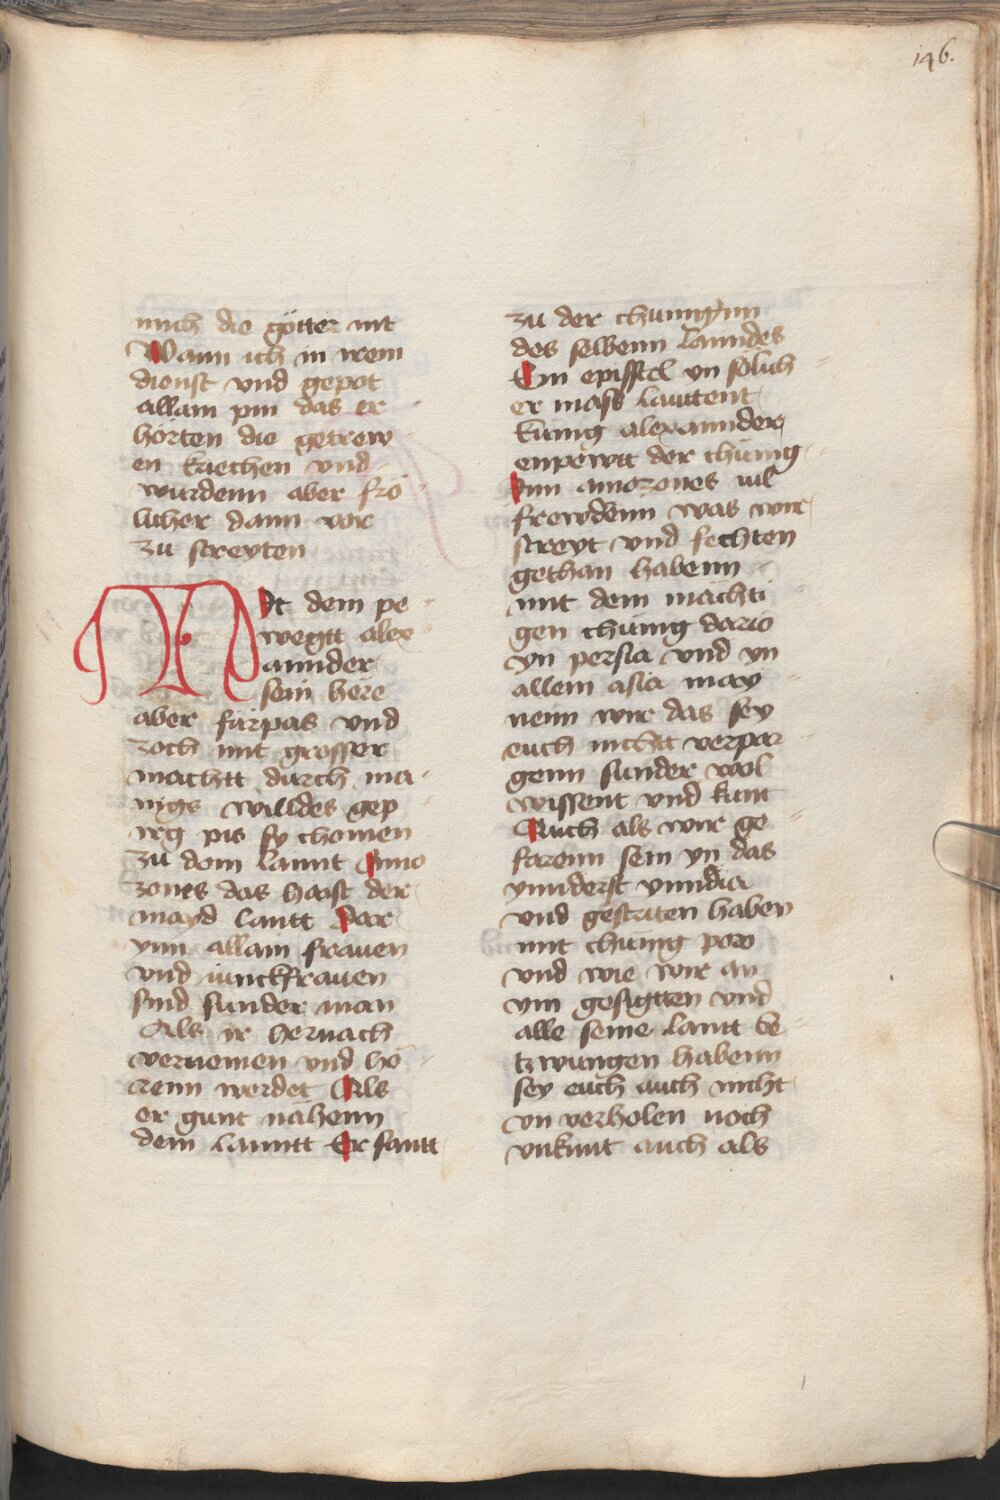 146.
mich die götter mit
Wann ich in irem
dienst vnd gepot
allain pin das er
hörten die getrew
en kriechen vnd
wurdenn aber frö
licher dann vor
zu streyten
MIt dem pe
wegtt alex
annder
sein here
aber fürpas vnd
zoch mit grosser
machtt durch ma
nigs willdes gep
irg pis sy chomen
zu dom lannt Amo
zones das haist der
mayd lantt Dar
ynn allain frauen
vnd iunckfrauen
sind sunder man
Als ir hernach
vernemen vnd hö
renn werdet Als
er gunt nähenn
dem lanntt Er santt
zu der chunigynn
des selbenn lanndes
Ein episstel yn sölich
er mass lauttent
Künig alexannder
enpewtt der chünig
Inn amozones vil
frewdenn was wir
streyt vnd fechten
gethan habenn
mit dem mächti
gen chünig dario
yn persia vnd yn
allem asia may
nenn wir das sey
euch nichtt verpor
genn sunder wol
wissent vnd kunt
Auch als wir ge
farenn sein yn das
ynnderst ynndia
vnd gestriten haben
mit chünig poro
vnd wie wir an
ym gesigtten vnd
alle seine lantt be
tzwungen habenn
sey euch auch nicht
vn verholen noch
vnkunt auch als